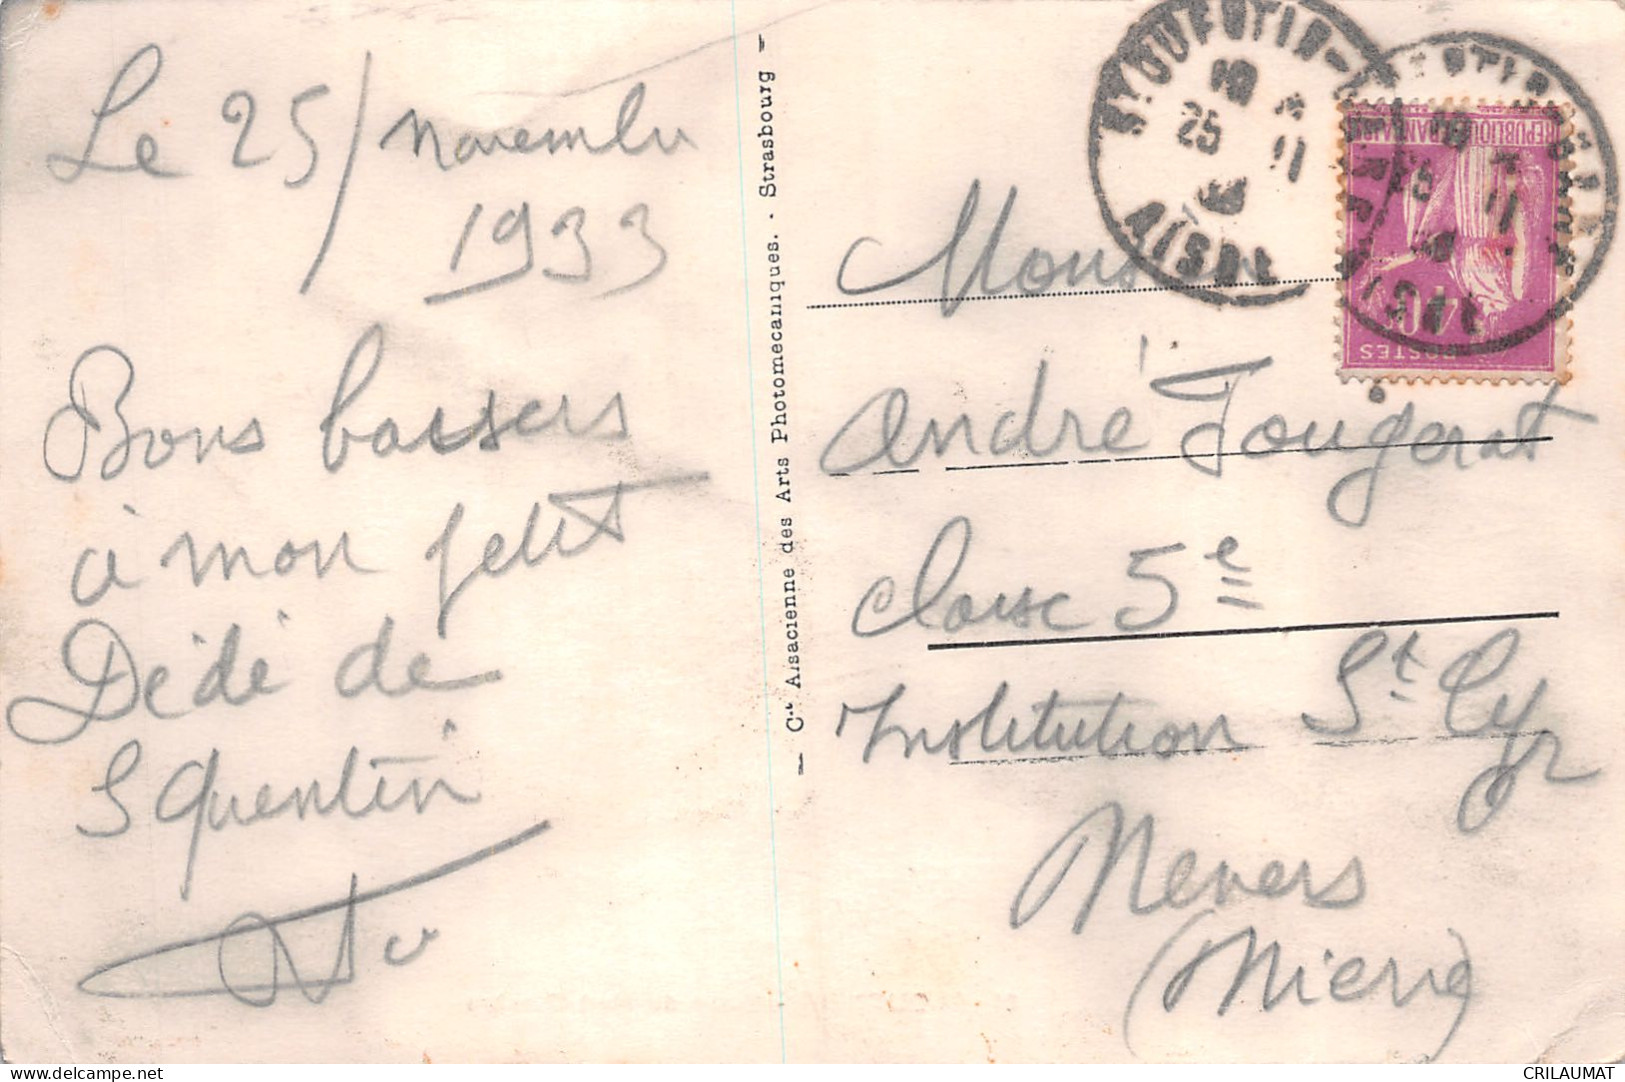 Le 25/novembre
1933
Bons baisers
à mon petit
Dédé de
S Quentin
— Cie Alsacienne des Arts Photomécaniques. - Strasbourg —
Monsieur
André Fougerat
Classe 5e
Institution St Cyr
Nevers
(Nievre)
ST QUENTIN-
25 11
33
AISNE
REPUBLIQUE FRANÇAISE
40c
POSTES
CRILAUMAT